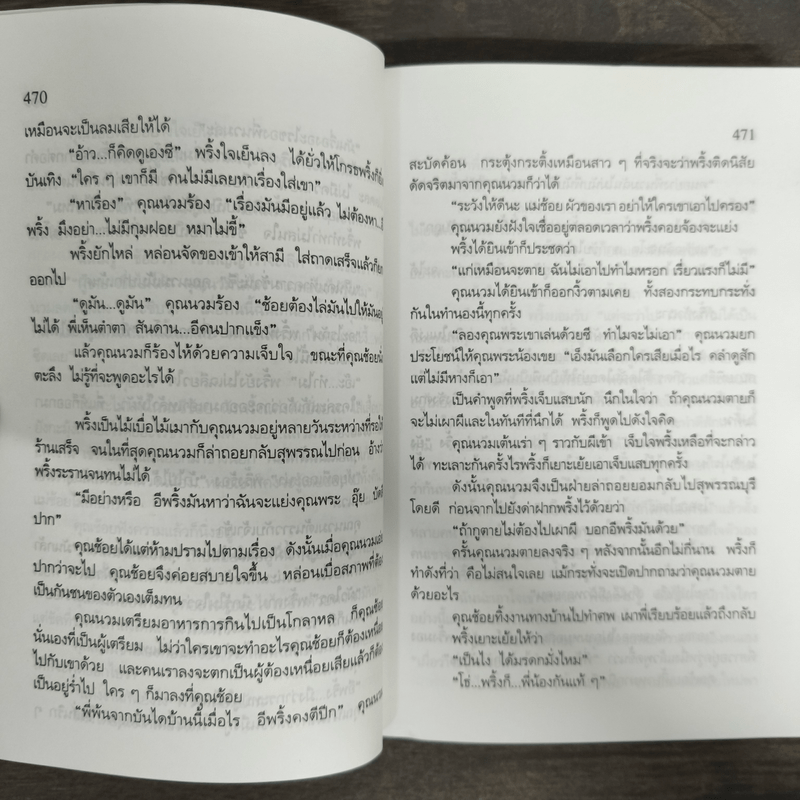 470
เหมือนจะเป็นลมเสียให้ได้
“อ้าว...ก็คิดดูเองซี” พริ้งใจเย็นลง ได้ยั่วให้โกรธพริ้งก็
บันเทิง “ใคร ๆ เขาก็มี คนไม่มีเลยหาเรื่องใส่เขา”
“หาเรื่อง” คุณนวมร้อง “เรื่องมันมีอยู่แล้ว ไม่ต้องหา...
พริ้ง มึงอย่า...ไม่มีกุมฝอย หมาไม่ขี้”
พริ้งยักไหล่ หล่อนจัดของเช้าให้สามี ใส่ถาดเสร็จแล้วก็
ออกไป
“ดูมัน...ดูมัน” คุณนวมร้อง “ช้อยต้องไล่มันไปให้
ไม่ได้ พี่เห็นตำตา สันดาน...อีคนปากแข็ง”
แล้วคุณนวมก็ร้องไห้ด้วยความเจ็บใจ ขณะที่คุณช้อย
ตะลึง ไม่รู้ที่จะพูดอะไรได้
พริ้งเป็นไม้เบื่อไม้เมากับคุณนวมอยู่หลายวันระหว่างที่รอ
ร้านเสร็จ จนในที่สุดคุณนวมก็ล่าถอยกลับสุพรรณไปก่อน
พริ้งระรานจนทนไม่ได้
“มีอย่างหรือ อีพริ้งมันหาว่าฉันจะแย่งคุณพระ อุ๊ย
ปาก”
คุณช้อยได้แต่ห้ามปรามไปตามเรื่อง ดังนั้นเมื่อคุณนวม
ปากว่าจะไป คุณช้อยจึงค่อยสบายใจขึ้น หล่อนเบื่อสภาพที่
เป็นกันชนของตัวเองเต็มทน
คุณนวมเตรียมอาหารการกินไปเป็นโกลาหล ก็
นั่นเองที่เป็นผู้เตรียม ไม่ว่าใครเขาจะทำอะไรคุณช้อยก็ต้อง
ไปกับเขาด้วย และคนเราลงจะตกเป็นผู้ต้องเหนื่อยเสียแล้วก็
เป็นอยู่ร่ำไป ใคร ๆ ก็มาลงที่คุณช้อย
“พี่พ้นจากบันไดบ้านนี้เมื่อไร อีพริ้งคงตีปีก”
471
สะบัดค้อน กระตุ้งกระติ้งเหมือนสาว ๆ ที่จริงจะว่าพริ้งติดนิสัย
ดัดจริตมาจากคุณนวมก็ว่าได้
“ระวังให้ดีนะ แม่ช้อย ผัวของเรา อย่าให้ใครเขาเอาไปครอง”
คุณนวมยังฝังใจเชื่ออยู่ตลอดเวลาว่าพริ้งคอยจ้องจะแย่ง
พริ้งได้ยินเข้าก็ประชดว่า
“แก่เหมือนจะตาย ฉันไม่เอาไปทำไมหรอก เรี่ยวแรงก็ไม่มี”
คุณนวมได้ยินเข้าก็ออกงิ้วตามเคย ทั้งสองกระทบกระทั่ง
กันในทำนองนี้ทุกครั้ง
“ลองคุณพระเขาเล่นด้วยซี ทำไมจะไม่เอา” คุณนวมยก
ประโยชน์ให้คุณพระน้องเขย “เอ็งมันเลือกใครเสียเมื่อไร คลำดูสัก
แต่ไม่มีหางก็เอา”
เป็นคำพูดที่พริ้งเจ็บแสบนัก นึกในใจว่า ถ้าคุณนวมตายก็
จะไม่เผาผีและในทันทีที่นึกได้ พริ้งก็พูดไปดังใจคิด
คุณนวมเต้นเร่า ๆ ราวกับผีเข้า เจ็บใจพริ้งเหลือที่จะกล่าว
ได้ ทะเลาะกันครั้งไรพริ้งก็เยาะเย้ยเอาเจ็บแสบทุกครั้ง
ดังนั้นคุณนวมจึงเป็นฝ่ายล่าถอยยอมกลับไปสุพรรณบุรี
โดยดี ก่อนจากไปยังด่าฝากพริ้งไว้ด้วยว่า
“ถ้ากูตายไม่ต้องไปเผาผี บอกอีพริ้งมันด้วย”
ครั้นคุณนวมตายลงจริง ๆ หลังจากนั้นอีกไม่กี่นาน พริ้งก็
ทำดังที่ว่า คือไม่สนใจเลย แม้กระทั่งจะเปิดปากถามว่าคุณนวมตาย
ด้วยอะไร
คุณช้อยทิ้งงานทางบ้านไปทำศพ เผาพี่เรียบร้อยแล้วถึงกลับ
พริ้งเยาะเย้ยให้ว่า
“เป็นไง ได้มรดกมั่งไหม”
“โธ่...พริ้งก็...พี่น้องกันแท้ ๆ”